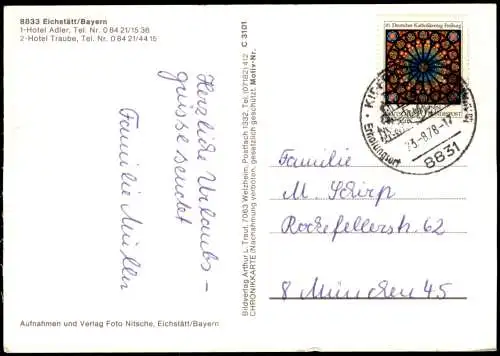 8833 Eichstätt/Bayern
1-Hotel Adler, Tel. Nr. 0 84 21/15 36
2-Hotel Traube, Tel. Nr. 0 84 21/44 15
Herzliche Urlaubs-
grüsse sendet
Familie Müller
Aufnahmen und Verlag Foto Nitsche, Eichstätt/Bayern
Bildverlag Arthur L. Traut, 7063 Welzheim, Postfach 1332, Tel. (07182) 412 C 3101
CHRONIKKARTE (Nachahmung verboten, gesetzlich geschützt) Motiv-Nr.
85. Deutscher Katholikentag Freiburg
Erholungsort
23.-8.78-17
8831
Familie
M. Schirp
Rockefellerstr. 62
8 München 45